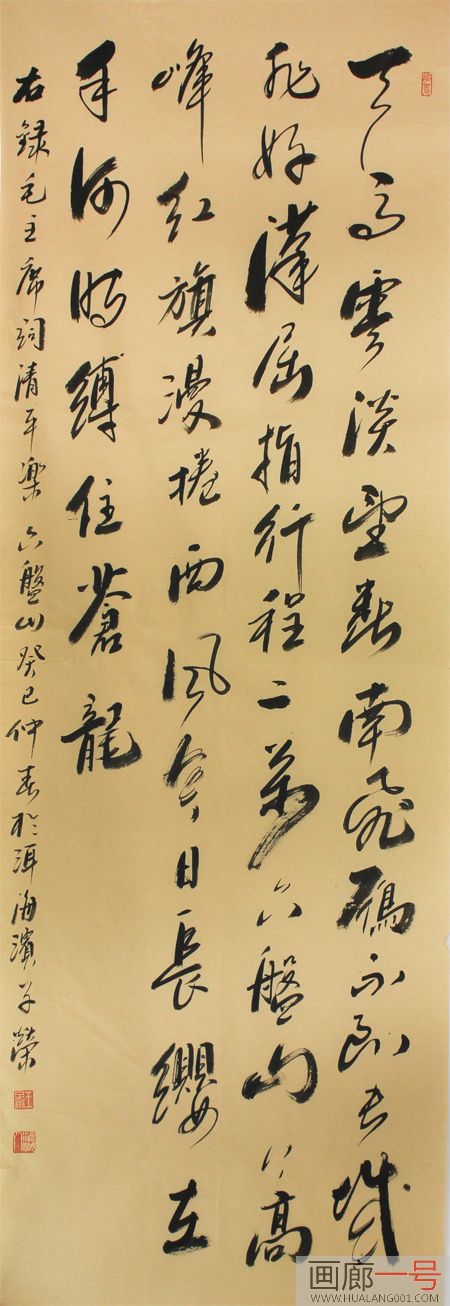 天高雲淡望斷南飛鴈不到长城
非好漢屈指行程二萬六盤山上高
峰紅旗漫捲西風今日長纓在
手何時縛住蒼龍
右録毛主席詞清平樂六盤山癸巳仲春於洱海濱榮
画廊一号
WWW.HUALANG001.COM